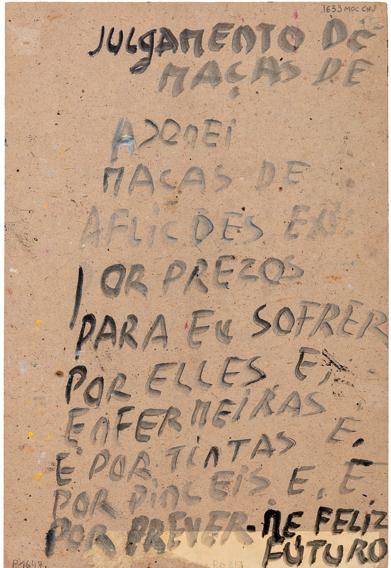 1633 MAC CHJ
JULGAMENTO DE
MAÇAS DE
AZONEI
MAÇAS DE
AFLICÕES EM
POR PREZOS
PARA EU SOFRER
POR ELLES E,
ENFERMEIRAS
E POR TINTAS E.
POR PINCEIS. E. E
POR PREVER-ME FELIZ
FUTURO